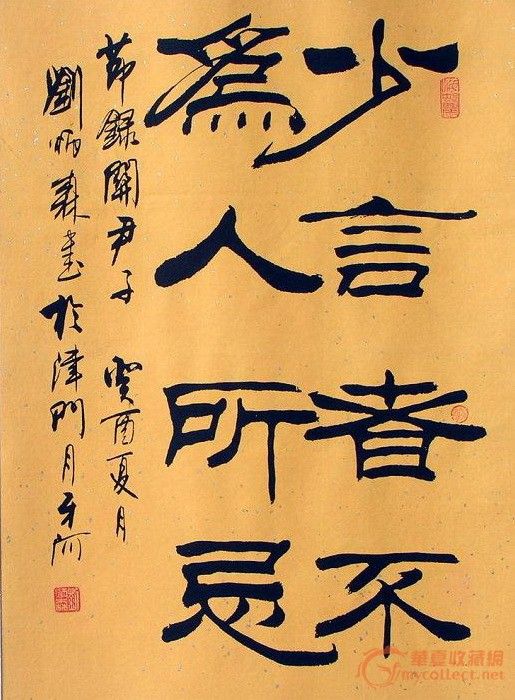 少言者不
為人所忌
節錄關尹子 癸酉夏月
劉炳森書於津門月牙河
華夏收藏網
mycollect.net